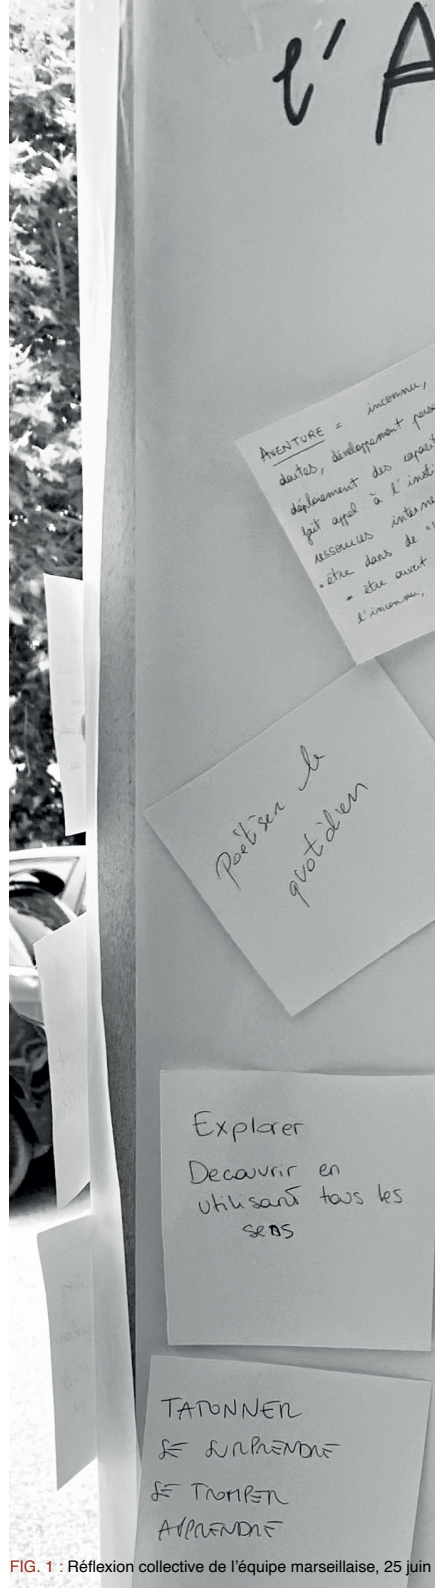 l'A
AVENTURE = inconnu,
doutes, développement pers
déploiement des capacit
fait appel à l'insti
ressources interne
• être dans de "l
• être ouvert
l'inconnu,
Poëtiser le
quotidien
Explorer
Decouvrir en
utilisant tous les
sens
TATONNER
SE SURPRENDRE
SE TROMPER
APPRENDRE
FIG. 1 : Réflexion collective de l'équipe marseillaise, 25 juin